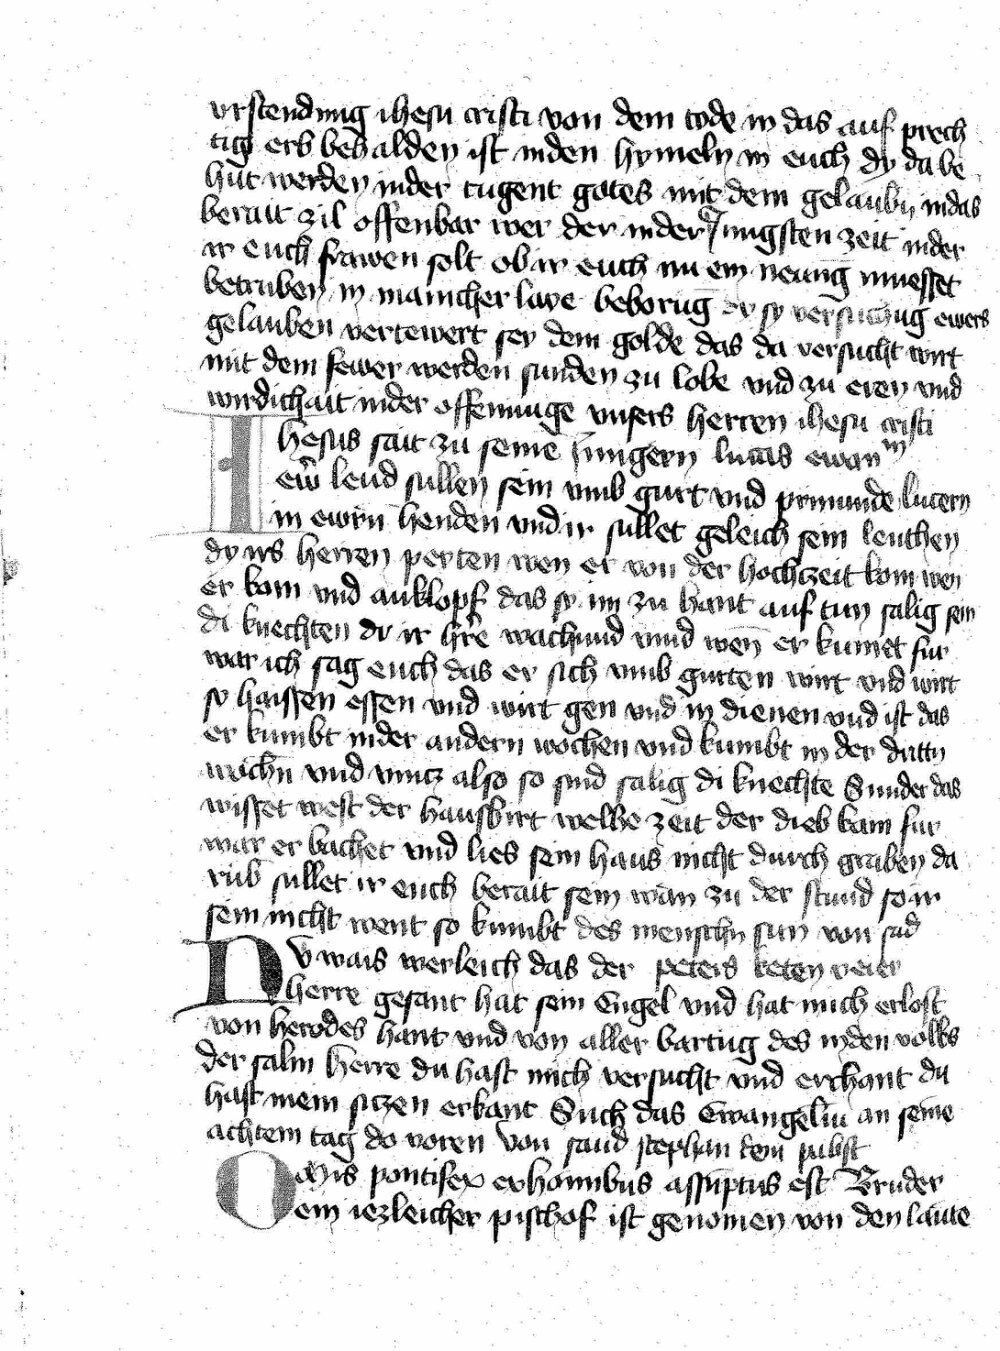 vrstendung ihesu cristi von dem tode in das auf prech
tig erb behalden ist inden hymeln in euch dy da be
hut werden inder tugent gotes mit dem gelaubn indas
berait zil offenbar wer der inder Jungsten zeit inder
ir euch frawen solt ob ir euch nu ein nenig muesset
betruben in manicher laye beborug dy sy versuchug ewers
gelauben vertewert sey dem golde das da versucht wirt
mit dem fewer werden funden zu lobe vnd zu eren vnd
wirdichait inder offennuge vnsers herren ihesu cristi
Ihesus sait zu seine Jungern lucas ewan
ew lend sullen sein vmb gurt vnd prinunde lucern
in ewrn henden vnd ir sullet geleich sein leuthen
dy irs herren peyten wen er von der hochzeit kom wen
er kom vnd anklopf das sy im zu hant auf tun salig sein
di knechten di ir hre wachund vind wen er kumet fur
war ich sag euch das er sich vmb gurten wirt vnd wirt
sy haissen essen vnd wirt gen vnd in dienen vnd ist das
er kumbt inder andern wochen vnd kumbt in der dritn
wachn vnd vintz also so sind salig di knechte Sunder das
wisset west der hausbirt welhe zeit der dieb kam fur
war er bachet vnd lies sein haus nicht durch graben da
rub sullet ir euch berait sein wan zu der stund so ir
sein nicht went so kumbt des menschn sun von sad
NV wais werleich das der peters keten veier
herre gesant hat sein Engel vnd hat mich erlost
von herodes hant vnd von aller bartug des iuden volks
der salm Herre du hast mich versucht vnd erchant du
hast mein sitzen erkant Such das Ewangeliu an seine
achtem tag do voren Von sand stephan dem pabst
Omis pontifex exhominibus assuptus est Bruder
ein iezleicher pischof ist genomen von den laute